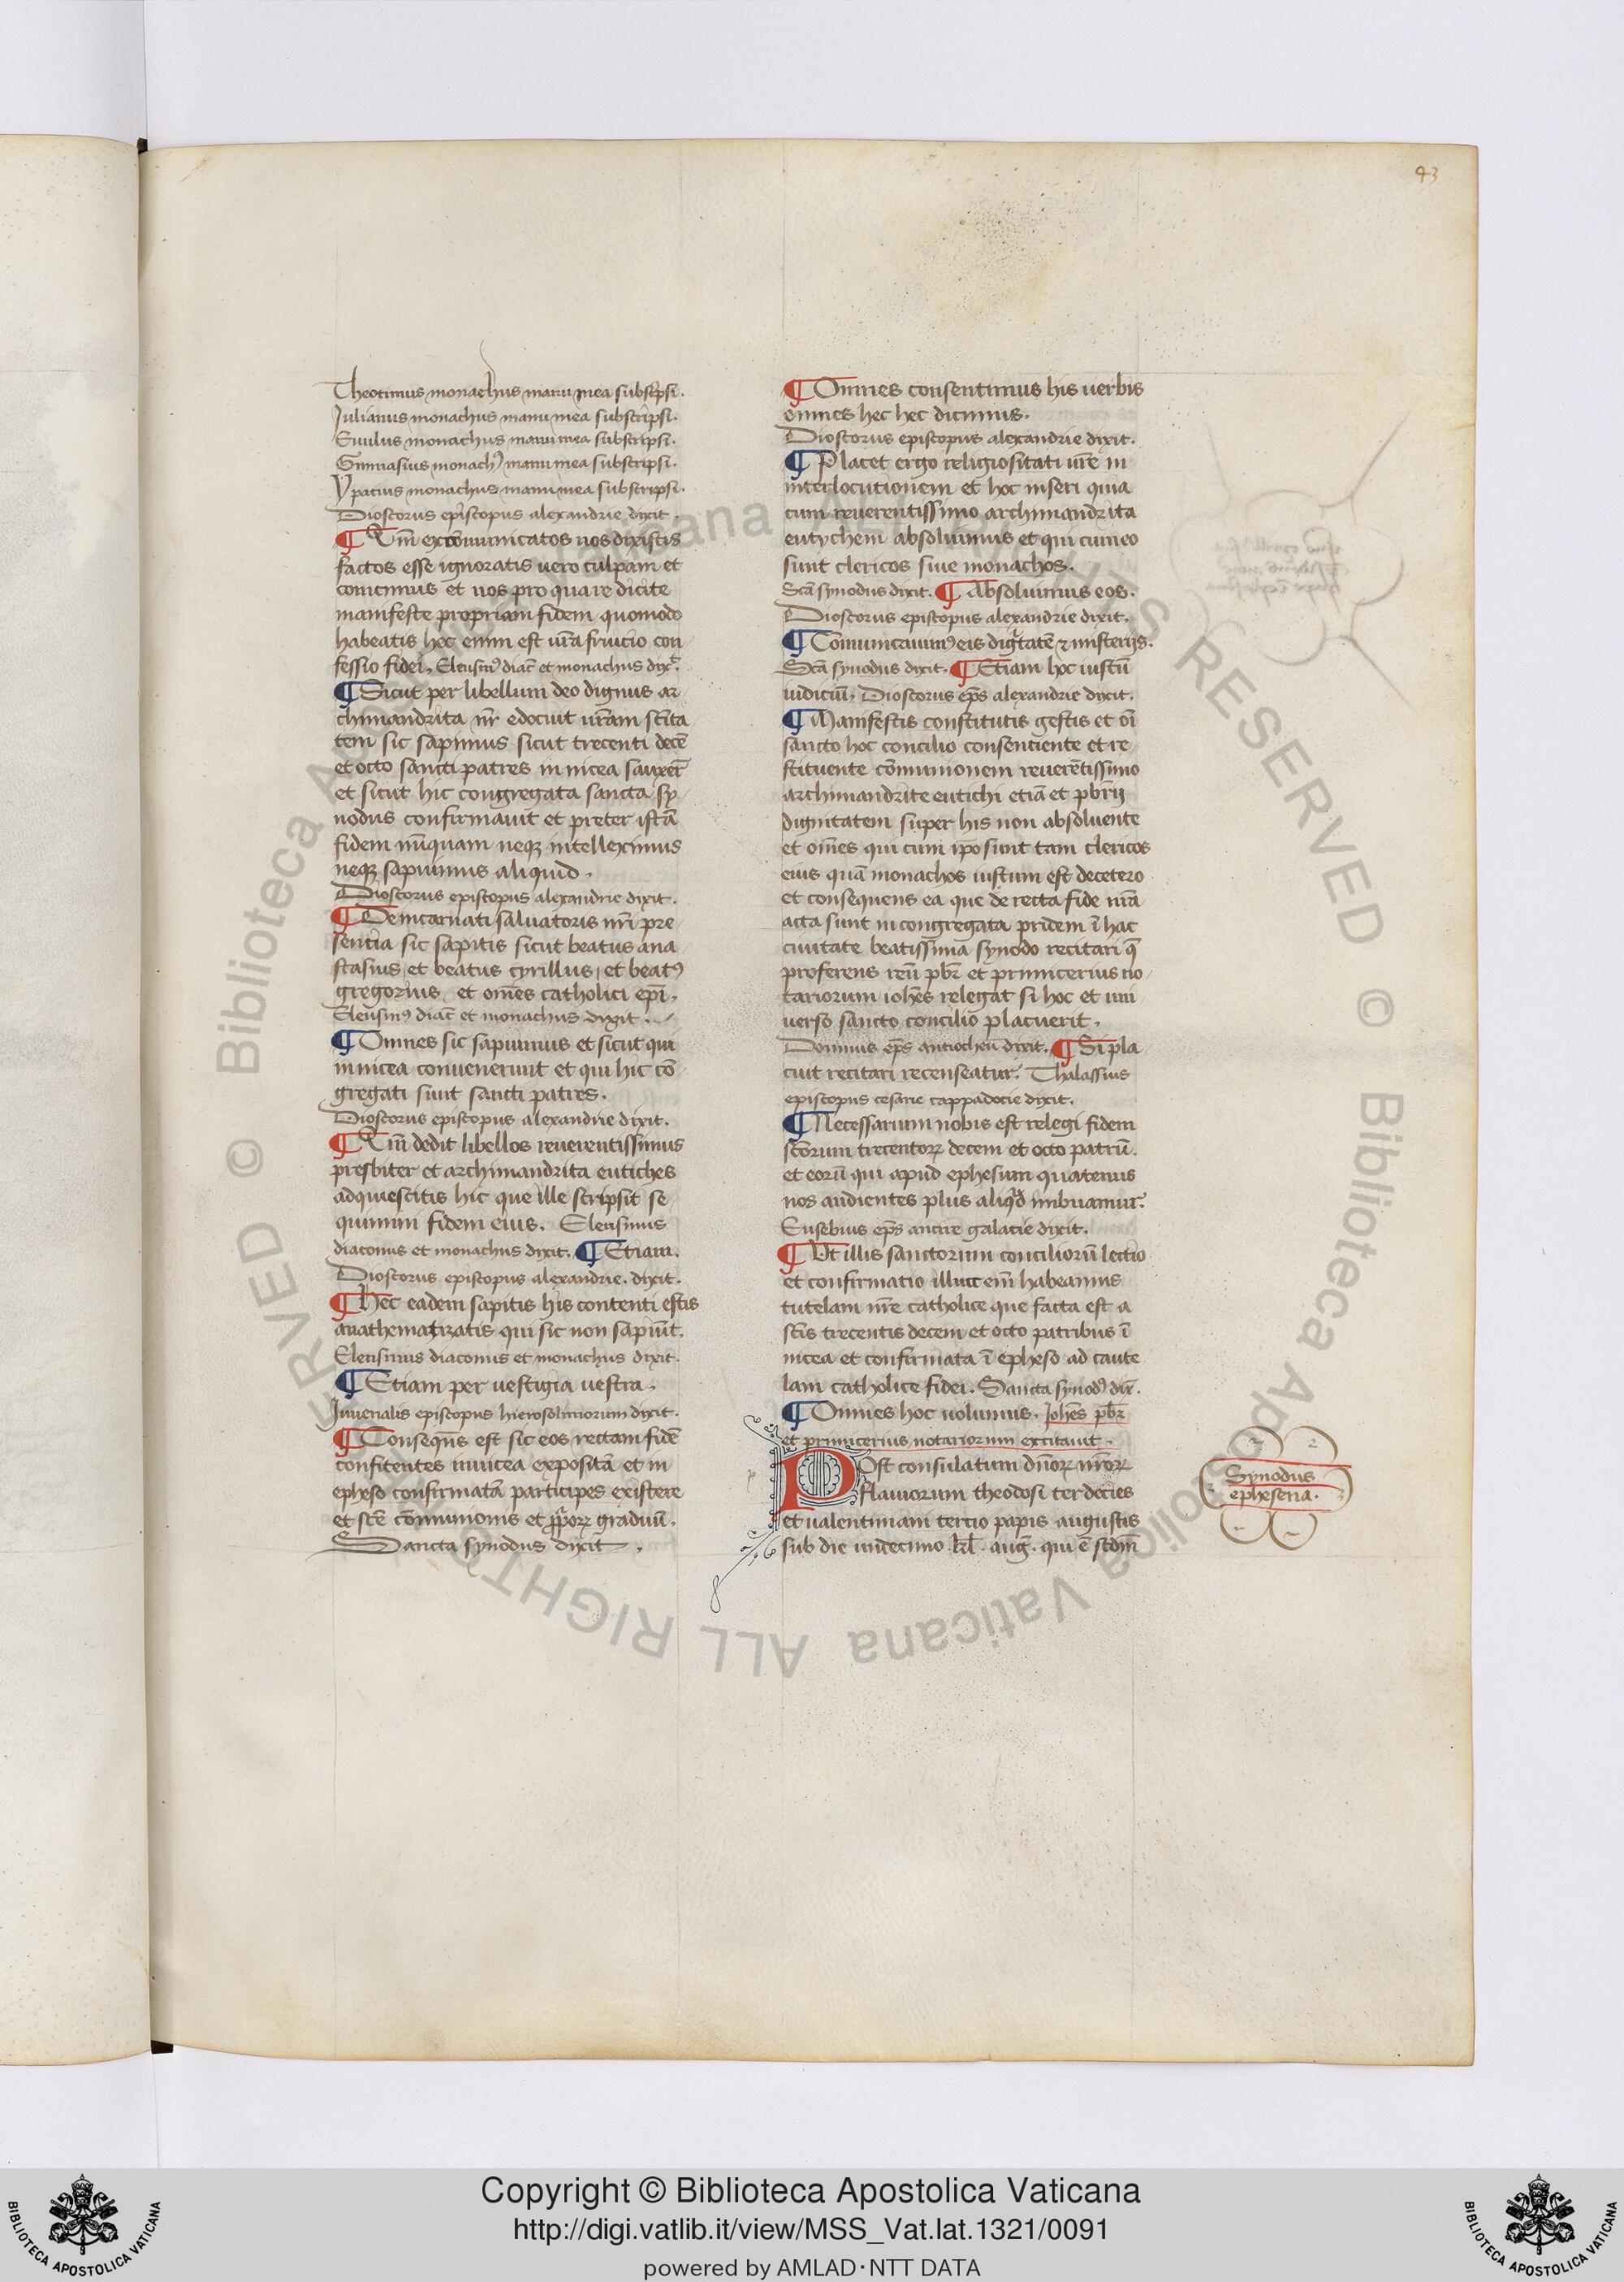 43
Theotimus monachus manu mea subscpsi.
Julianus monachus manu mea subscripsi.
Euulus monachus manu mea subscripsi.
Gimnasius monachꝰ manu mea subscripsi.
Ypatius monachus manu mea subscripsi.
Dioscorus episcopus alexandrie dixit.
¶ excōmunicatos nos dixistis
factos esse ignoratis uero culpam et
et nos pro quare dicite
manifeste propriam fidem quomodo
habeatis hec enim est ura͞ con
fessio fidei. Eleusinꝰ diac̄ et monachus dix͞.
¶ Sicut per libellum deo dignus ar
chimandrita nr̄ edocuit ur̄am sc̄ita
tem sic sapimus sicut trecenti decē
et octo sancti patres in nicea sanxer̄
et sicut hic congregata sancta sy
nodus confirmauit et preter istā
fidem nūquam neqꝫ intelleximus
neqꝫ sapuimus aliquid.
Dioscorus episcopus alexandrie dixit.
¶ De incarnati saluatoris nr̄i pre
sentia sic sapitis sicut beatus ana
stasius, et beatus cyrillus, et beatꝰ
gregorius, et om̄es catholici ep̄i.
Eleusinꝰ diac̄ et monachus dixit.
¶ Omnes sic sapuimus et sicut qui
in nicea conuenerunt et qui hic cō
gregati sunt sancti patres.
Dioscorus episcopus alexandrie dixit.
¶ dedit libellos reuerentissimus
presbiter et archimandrita eutiches
adquiescitis hic que ille scripsit se
quimini fidem eius. Eleusinus
diaconus et monachus dixit. ¶ Etiam.
Dioscorus episcopus alexandrie. dixit.
¶ Hec eadem sapitis his contenti estis
anathematizatis qui sic non sapiūt.
Eleusinus diaconus et monachus dixit.
¶ Etiam per uestigia uestra.
Juuenalis episcopus hierosolimorum dixit.
¶ Conseqn̄s est sic eos rectam fidē
confitentes in nicea expositā et in
epheso confirmatā participes existere
et sc̄e cōmunionis et ꝓprioꝝ graduū.
Sancta synodus dixit.
¶ Omnes consentimus his uerbis
omnes hec hec dicimus.
Dioscorus episcopus alexandrie dixit.
¶ Placet ergo religiositati ur̄e in
interlocutionem et hoc inseri quia
cum reuerentissimo archimandrita
eutychem absoluimus et qui cum eo
sunt clericos siue monachos.
Sc̄a synodus dixit. ¶ Absoluimus eos.
Dioscorus episcopus alexandrie dixit.
¶ eis
Sc̄a synodus dixit. ¶ Etiam hoc iustū
iudiciū. Dioscorus ep̄s alexandrie dixit.
¶ Manifestis constitutis gestis et oī
sancto hoc concilio consentiente et re
stituente cōmunionem reuerētissimo
archimandrite eutichi etiā et pb̄rij
dignitatem super his non absoluente
et om̄es qui cum ip̄o sunt tam clericos
eius quā monachos iustum est decetero
et consequens ea que de recta fide nr̄a
acta sunt in congregata pridem ī hac
ciuitate beatissima synodo recitari q̄
proferens reū pb̄r et primicerius no
tariorum ioh̄es relegat si hoc et uni
uerso sancto concilio placuerit.
Domnus ep̄s antiochen̄ dixit. ¶ Si pla
cuit recitari recenseatur. Thalassius
episcopus cesarie cappadocie dixit.
¶ Necessarium nobis est relegi fidem
sc̄orum trecentoꝝ decem et octo patrū.
et eorū qui apud ephesum quatenus
nos audientes plus aliqd imbuamur.
Eusebius ep̄s ancire galacie dixit.
¶ Ut illis sanctorum conciliorū lectio
et confirmatio illucem̄ habeamus
tutelam nr̄e catholice que facta est a
sc̄is trecentis decem et octo patribus ī
nicea et confirmata ī epheso ad caute
lam catholice fidei. Sancta synodꝰ dix̄.
¶ Omnes hoc uolumus. Joh̄es pb̄r
et primicerius notariorum excitauit.
Post consulatum dn̄oꝝ nr̄oꝝ
flauiorum theodosi ter decies
et ualentiniani tertio papis augustis
sub die undecimo. kl̄. auḡ. qui ē scdm̄
Synodus
ephesena.
© Biblioteca Apostolica Vaticana ALL RIGHTS RESERVED
Copyright © Biblioteca Apostolica Vaticana
http://digi.vatlib.it/view/MSS_Vat.lat.1321/0091
powered by AMLAD·NTT DATA
BIBLIOTECA APOSTOLICA VATICANA
BIBLIOTECA APOSTOLICA VATICANA